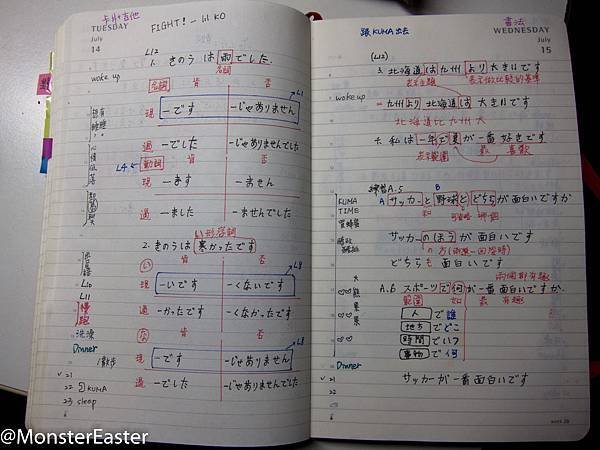 卡林吉他
TUESDAY
July
14
FIGHT! - lil KO
L12
1. きのうは雨でした.
名詞
wake up
名詞 肯 否
L1
現 -です -じゃありません
過 -でした -じゃありませんでした
L4
動詞 肯 否
現 -ます -ません
過 -ました -ませんでした
い形容詞
2. きのうは寒かったです
い 肯 否
L8
現 -いです -くないです
過 -かったです -くなかったです
な 肯 否
現 -です -じゃありません
過 -でした -じゃありませんでした
L10
L11
慢跑
洗澡
Dinner
散步
21
22 KUMA
23 sleep
6
跟KUMA出去
書法
WEDNESDAY
July
15
(L12)
3. 北海道は九州より大きいです
表示主題 表示做比較的基準
wake up
= 九州より北海道は大きいです
北海道比九州大
4. 私は一年で夏が一番好きです
表示範圍 最 喜歡
練習A.5
KUMA
TIME
A B
A サッカーと野球とどちらが面白いですか
サッカーのほうが面白いです
どちらも面白いです
兩個都有趣
A.6 スポーツで何が一番面白いですか.
範圍 最 有趣
人で誰
地方でどこ
時間でいつ
事物で何
Dinner
サッカーが一番面白いです
21
22
6
week 28
@MonsterEaster